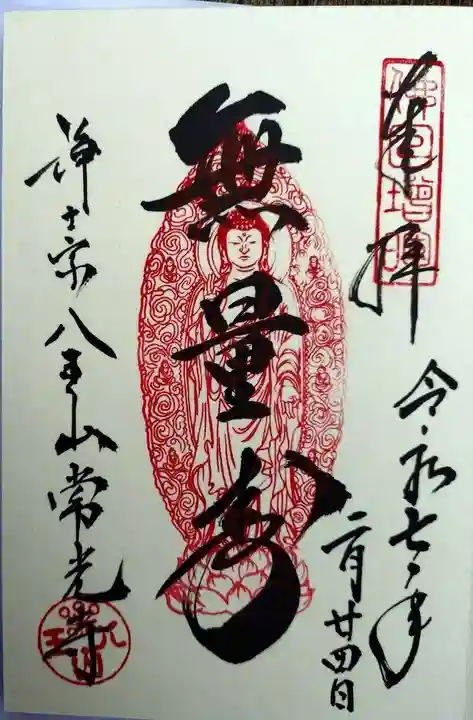 奉拝
令和七年
二月廿四日
無量寿
浄土宗八王山常光寺